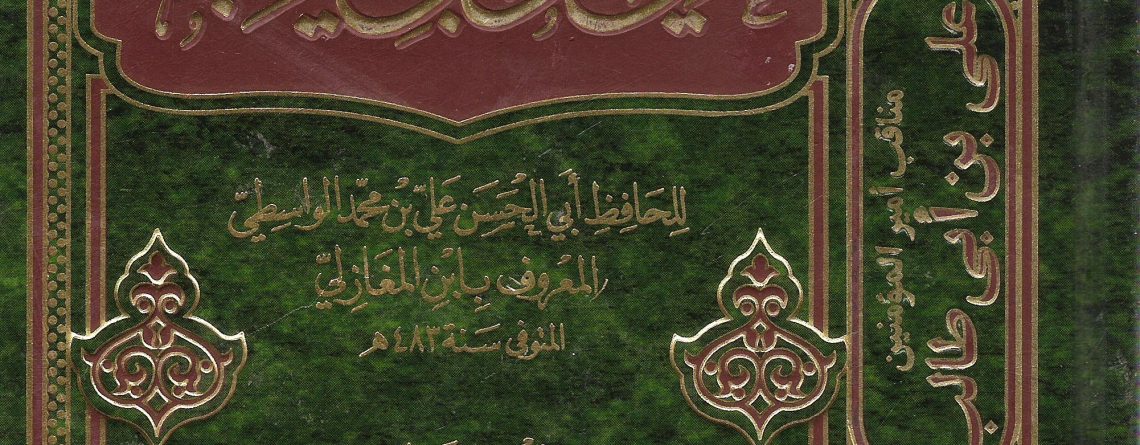 للحَافِظِ أَبي الحُسَن عَليّ بْن محمَّد الوَاسِطِيّ
المعرُوف بِابْنِ المَغَازِليّ
المتوفى سَنة ٤٨٣ هـ
مناقب أمير المؤمنين
على بن أبى طالب